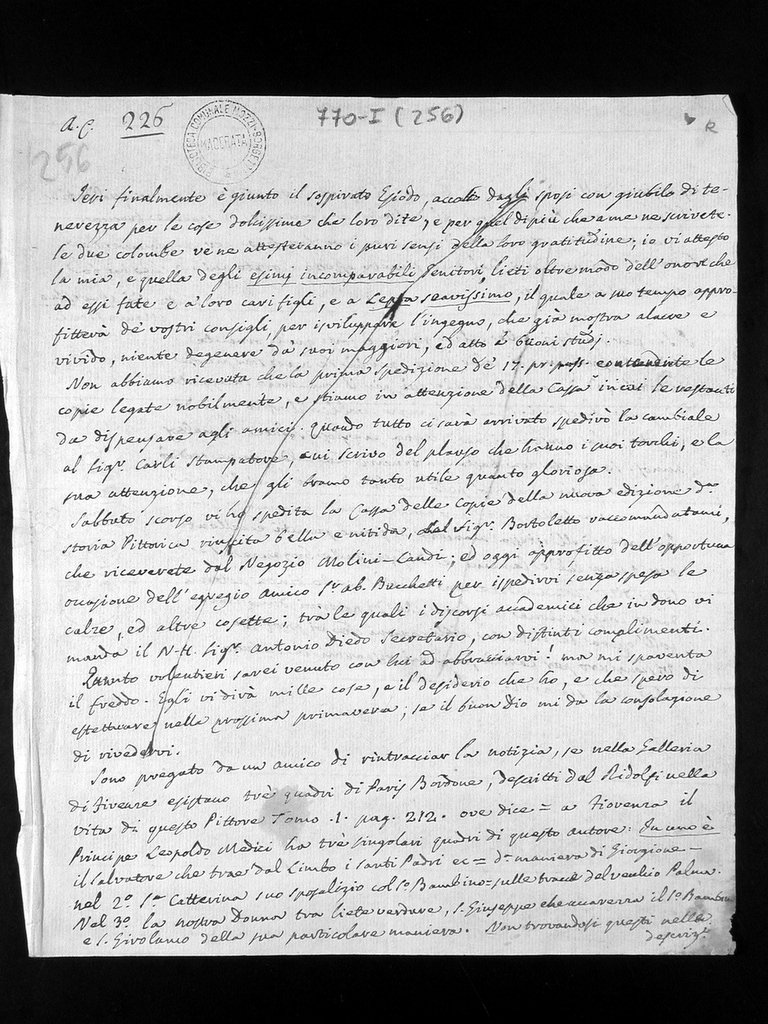 a.c. 226
770-I (256)
R
256
BIBLIOTECA COMUNALE MOZZI-BORGETTI MACERATA
Ieri finalmente è giunto il sospirato Esiodo, accolto dagli sposi con giubilo di te-
nerezza per le cose dolcissime che loro dite, e per quel di più che a me ne scrivete.
le due colombe ve ne attesteranno i puri sensi della loro gratitudine; io vi attesto
la mia, e quella degli esimj incomparabili Genitori, lieti oltre modo dell'onore che
ad essi fate e a loro cari figli, e a Beppa soavissimo, il quale a suo tempo appro-
fitterà de' vostri consigli, per isviluppare l'ingegno, che già mostra alacre e
vivido, niente degenere da' suoi maggiori, ed atto a' buoni studj.
Non abbiamo ricevuta che la prima spedizione de' 17. pr. pass. contenente le
copie legate nobilmente, e stiamo in attenzione della Cassa in cui le restanti
da dispensare agli amici. quando tutto ci sarà arrivato spedirò la cambiale
al Sigr. Carli Stampatore, cui scrivo del plauso che hanno i suoi torchi, e la
sua attenzione, che gli bramo tanto utile quanto gloriosa.
Sabbato scorso vi ho spedita la Cassa delle Copie della nuova edizione da.
storia Pittorica riuscita bella e nitida, dal Sigr. Bortoletto raccomandatami,
che riceverete dal Negozio Molini-Landi; ed oggi approfitto dell'opportuna
occasione dell'egregio amico Sr. ab. Becchetti per ispedirvi senza spesa le
calze, ed altre cosette; trà le quali i discorsi accademici che in dono vi
manda il N.H. Sigr. Antonio Diedo Secretario, con distinti complimenti.
Quanto volentieri sarei venuto con lui ad abbracciarvi! ma mi spaventa
il freddo. Egli vi dirà mille cose, e il desiderio che ho, e che spero di
effettuare nella prossima primavera, se il buon Dio mi dà la consolazione
di rivedervi.
Sono pregato da un amico di rintracciar la notizia, se nella Galleria
di Firenze esistano trè quadri di Paris Bordone, descritti dal Ridolfi nella
vita di questo Pittore Tomo .1. pag. 212. ove dice = a Fiorenza il
Principe Leopoldo Medici ha trè singolari quadri di questo autore: In uno è
il Salvatore che trae dal Limbo i santi Padri ec = da. maniera di Giorgione —
nel 2°. Sa. Catterina suo sposalizio col So. Bambino = sulle traccie del vecchio Palma.
Nel 3°. la nostra Donna tra liete verdure, S. Giuseppe che accarezza il So. Bambino
e S. Girolamo della sua particolare maniera. Non trovandosi questi nella
descriz.e